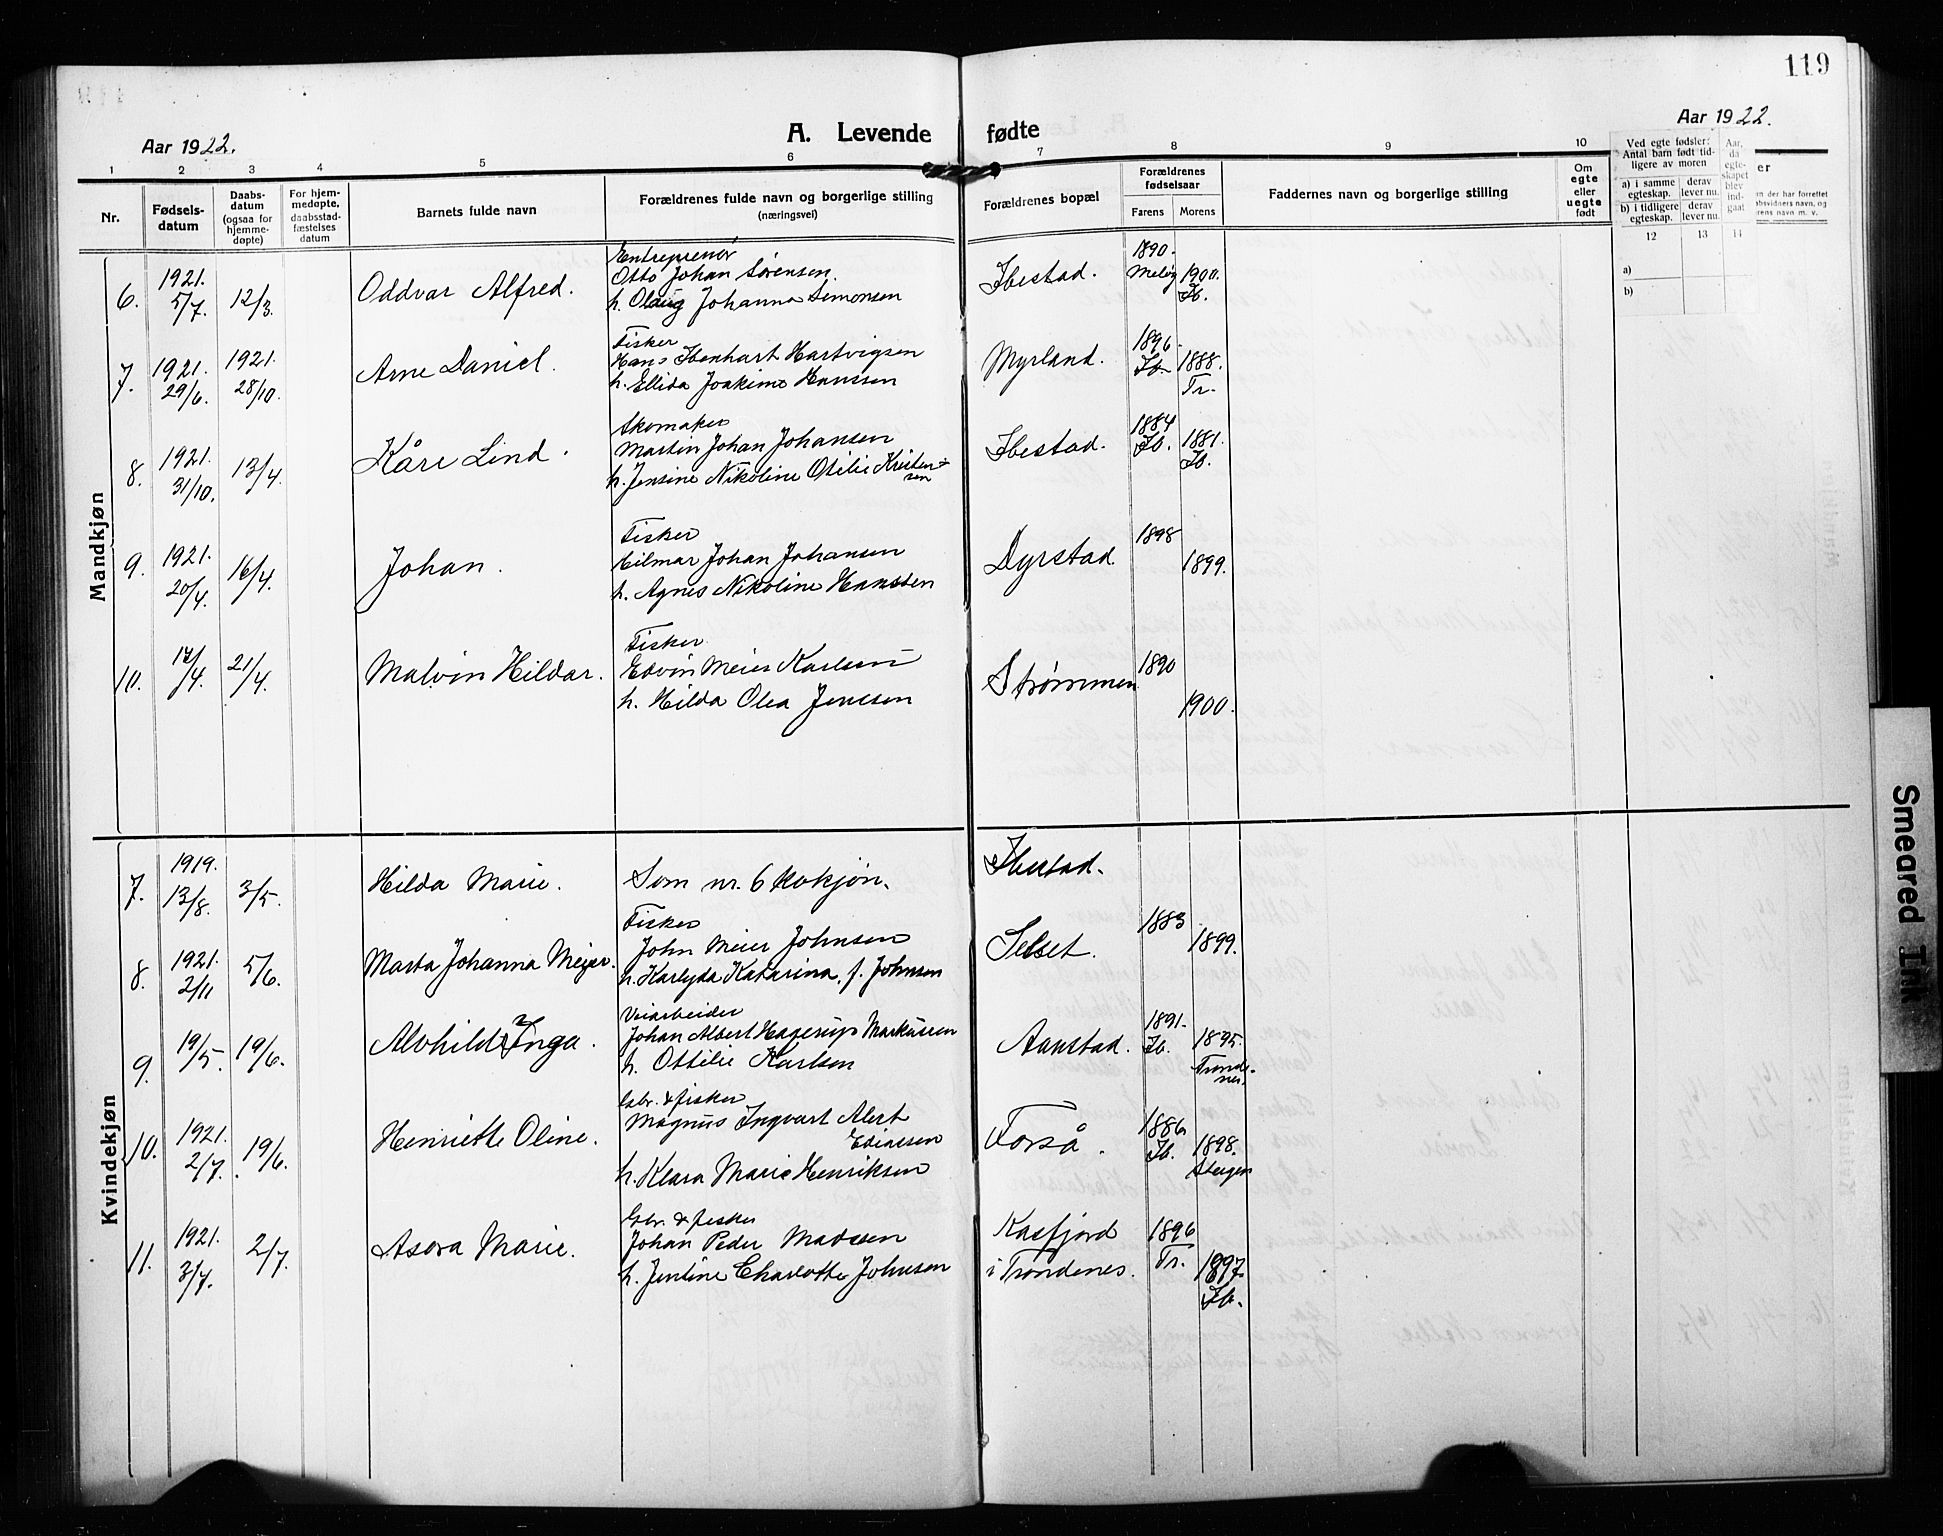 119
Aar 1922.
A. Levende fødte
Aar 1922.
1 2 3 4 5 6 7 8 9 10
Nr.
Fødsels-
datum
Daabs-
datum
(ogsaa for
hjemme-
døpte)
For hjem-
medøpte,
daabsstad-
fæstelses
datum
Barnets fulde navn
Forældrenes fulde navn og borgerlige stilling
(næringsvei)
Forældrenes bopæl
Forældrenes
fødselsaar
Farens Morens
Faddernes navn og borgerlige stilling
Om
egte
eller
uegte
født
Ved egte fødsler:
Antal barn født tid-
ligere av moren
a) i samme
egteskap.
derav
lever nu.
b) i tidligere
egteskap.
derav
lever nu.
Aar,
da
egte-
skapet
blev
ind-
gaat
12 13 14
a)
b)
Mandkjøn
6. 1921. 5/7. 12/3. Oddvar Alfred.
Entreprenør
Otto Johan Sørensen.
h. Johanna Simonsen
Ibestad. 1890. Meløy 1900. Ib.
7. 1921. 29/6. 1921. 28/10. Arne Daniel.
Fisker
Hans Ibenhart Hartvigsen
h. Ellida Joakime Hanssen
Myrland. 1896. Ib. 1888. Tr.
8. 1921. 31/10. 13/4. Kåre Lind.
Skomaker
Martin Johan Johansen
h. Jensine Nikoline Otilie Kristen-
sen
Ibestad. 1884 Ib. 1881. Ib.
9. 1921. 20/4. 16/4. Johan.
Fisker
Hilmar Johan Johansen
h. Agnes Nikoline Hanssen
Dyrstad. 1898 1899.
10. 14/4. 21/4. Malvin Hildar.
Fisker
Edvin Meier Karlsen
h. Hilda Olea Jenssen
Strømmen 1890 1900.
Kvindekjøn
7. 1919. 13/8. 3/5. Hilda Marie. Som nr. 6 Ibestad.
8. 1921. 2/11 5/6. Marta Johanna Meier.
Fisker
John Meier Johnsen
h. Karlyda Katarina, f. Johnsen
Selset. 1883 1899.
9. 19/5. 19/6. Alvhild Inga.
Veiarbeider
Johan Albert Hagerup Markussen
h. Ottilie Karlsen
Aanstad. 1891. Ib. 1895. Tronde-
nes.
10. 1921. 2/7. 19/6. Henriette Oline.
Gbr. & fisker
Magnus Ingvart Alert
Ediassen
h. Klara Marie Henriksen
Forså. 1886 Ib. 1898. Steigen
11. 1921. 3/7. 2/7. Asora Marie.
Gbr. & fisker
Johan Peder Madssen
h. Jentine Charlotte Johnsen
Kasfjord
i Trondenes. 1896 Tr. 1897. Ib.
Smeared Ink